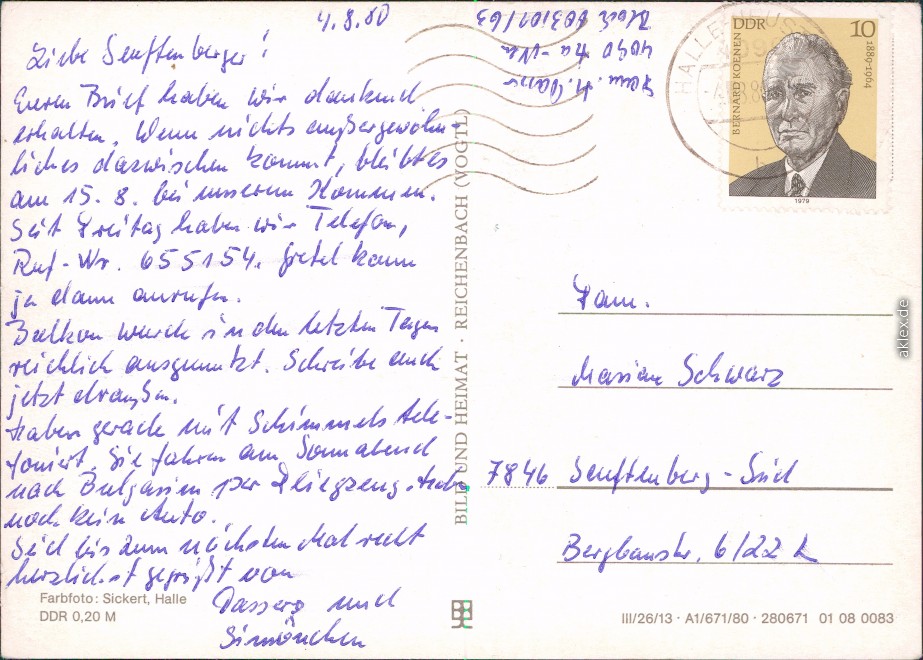 4.8.80
Liebe Senftenberger!
Euren Brief haben wir dankend
erhalten. Wenn nichts außergewöhn-
liches dazwischen kommt, bleibt es
am 15. 8. bei unserem Kommen.
Seit Freitag haben wir Telefon,
Ruf-Nr. 655154. Gretel kann
ja dann anrufen.
Balkon wurde in den letzten Tagen
reichlich ausgenutzt. Schreibe auch
jetzt draußen.
Haben gerade mit Schimmels tele-
foniert. Sie fahren am Sonnabend
nach Bulgarien per Fliegzeug. Habe
noch kein Auto.
Seid bis zum nächsten Mal recht
herzlichst gegrüßt von
und
Simönchen
Farbfoto: Sickert, Halle
DDR 0,20 M
BILD UND HEIMAT · REICHENBACH (VOGTL)
Fam. H.
4090 Ha-Neu
Block 003101/63
HALLE-NEUS
DDR 10
BERNARD KOENEN
1889-1964
1979
Fam.
Marian Schwarz
7846 Senftenberg-Süd
Bergbaustr. 6/22 L
III/26/13 · A1/671/80 · 280671 01 08 0083
aklex.de